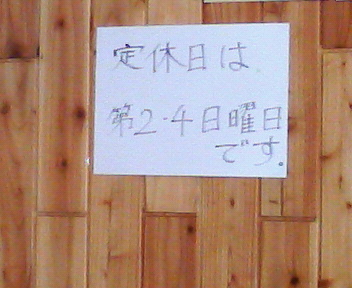 定休日は
第2·4日曜日
です。